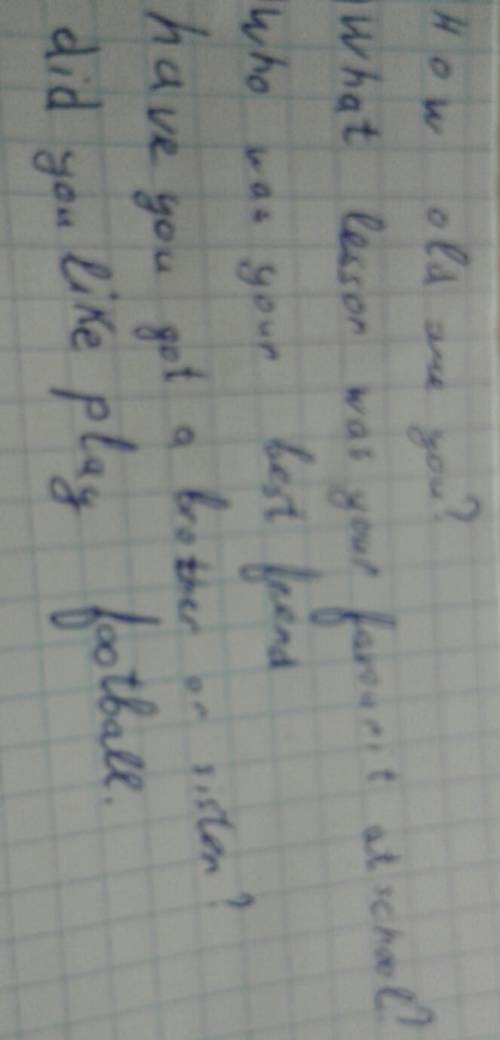 How old are you?
What lesson was your favourit at school?
Who was your best frend
have you got a brother or sister?
did you like play football.